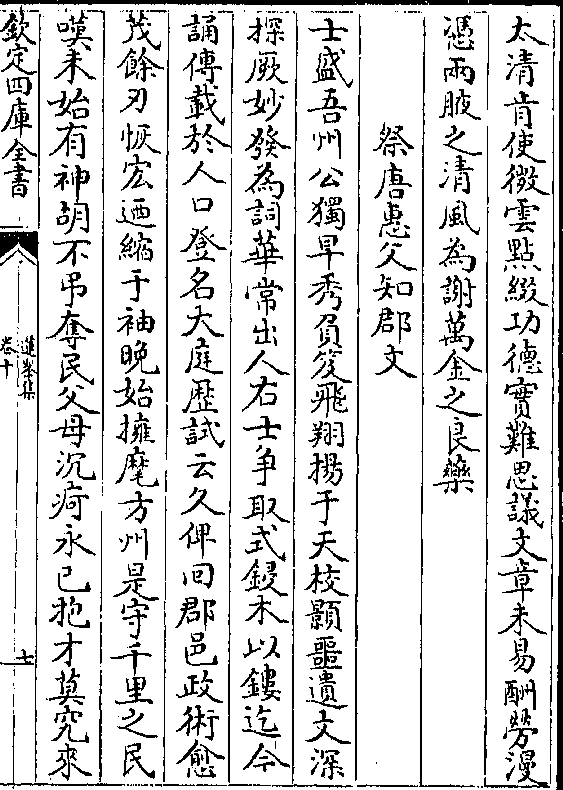 太清肯使微雲點綴功德實難思議文章未易酬勞漫
憑兩腋之清風為謝萬金之良藥
祭唐惠父知郡文
士盛吾州公獨早秀負笈飛翔揚于天校顥噩遺文深
探厥妙發為詞華常出人右士争取式鋟木以鏤迄今
誦傳載於人口登名大庭歴試云久俾回郡邑政術愈
茂餘刃恢宏迺縮于袖晚始擁麾方州是守千里之民
嘆未始有神胡不弔奪民父母沉疴永已抱才莫究來
欽定四庫全書
蓮峯集
卷十
七